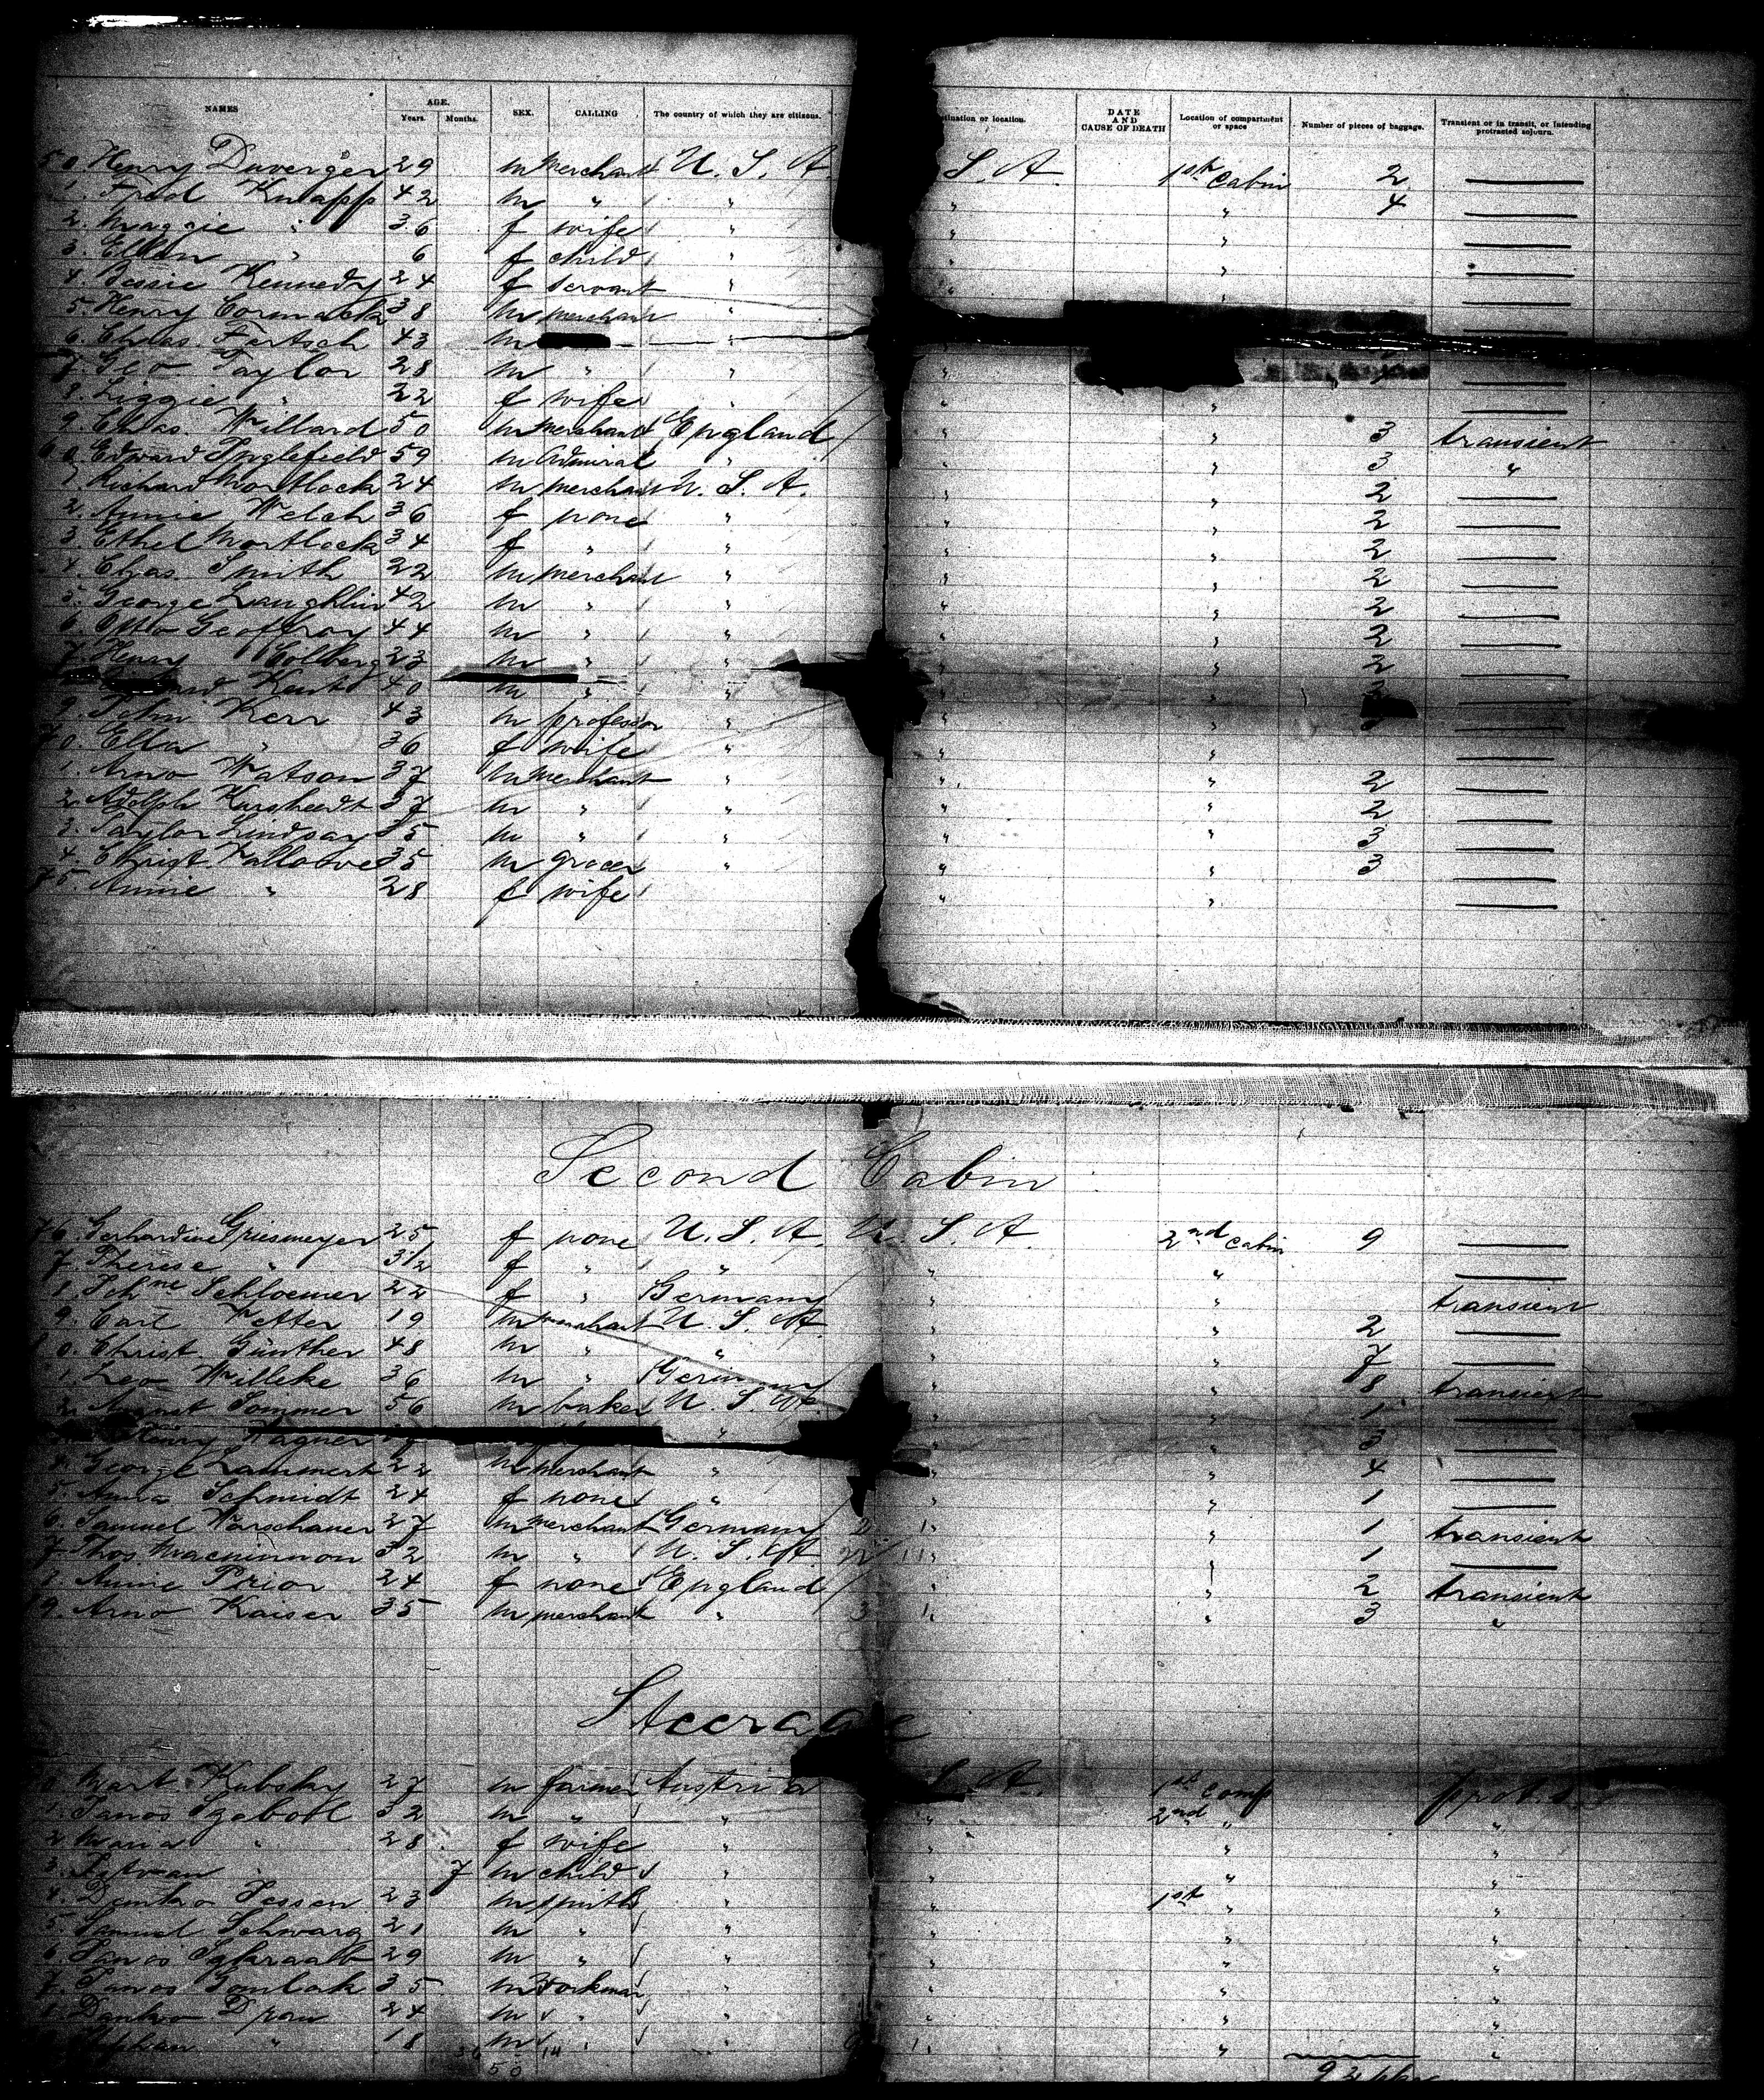 NAMES AGE. Years. Months. SEX. CALLING The country of which they are citizens. tination or location. DATE AND CAUSE OF DEATH Location of compartment or space Number of pieces of baggage. Transient or in transit, or intending protracted sojourn.
50. Henry Duverger 29 m merchant U. S. A. S. A. 1st Cabin 2 —
1. Fred Knapp 42 m " " " " 4 —
2. Maggie " 36 f wife " " " —
3. Ellen " 6 f child " " " —
4. Bessie Kennedy 24 f servant " " " —
5. Henry Cormack 38 m merchant " —
6. Chas. Fertsch 43 m " "
7. Geo Taylor 28 m " " " —
8. Lizzie " 22 f wife " " " —
9. Chas. Willard 50 m merchant England " " 3 transient
60. Edward Inglefield 59 m Admiral " " " 3 "
1. Richard Mortlock 24 m merchant U. S. A. " " 2 —
2. Annie Welch 36 f none " " " 2 —
3. Ethel Mortlock 34 f " " " " 2 —
4. Chas. Smith 22 m merchant " " " 2 —
5. George Laughlin 42 m " " " " 2 —
6. Otto Geoffroy 44 m " " " " 2 —
7. Henry Colberg 23 m " " " " 2 —
Kent 40 m " " " " —
9. John Kerr 43 m professor " " " —
70. Ella " 36 f wife " " " —
1. Arno Watson 37 m merchant " " " 2 —
2. Adolph Hursheedt 37 m " " " " 2 —
3. Taylor Lindsay 35 m " " " " 3 —
4. Christ. Fallowe 35 m grocer " " " 3 —
75. Annie " 28 f wife " " —
Second Cabin
76. Gerhardine Griesmeyer 25 f none U. S. A. U. S. A. 2nd cabin 9 —
7. Therese " 3½ f " " " " —
8. Johne Schloemer 22 f " Germany " " transient
9. Carl Vetter 19 m merchant U. S. A. " " 2 —
80. Christ. Günther 48 m " " " " 7 —
1. Leo Willeke 36 m " Germany " " 8 transient
2. August Sommer 56 m baker U. S. A. " " 1 —
Henry Wagner " " " 3 —
4. George Lammert 22 m merchant " " " 4 —
5. Anna Schmidt 24 f none " " " 1 —
6. Samuel Warschauer 27 m merchant Germany " " 1 transient
7. Thos. Mackinnon 32 m " U. S. A. " " 1 —
8. Annie Prior 24 f none England " " 2 transient
9. Arno Kaiser 35 m merchant " " " 3 "
Steerage
0. Mart. Kubsky 27 m farmer Austria S. A. 1st comp prot. s
1. Janos Szaboll 32 m " " " 2nd " "
2. Maria " 28 f wife " " " "
3. Istvan " 7 m child " " " "
4. Danko Jessen 23 m smith " " 1st " "
5. Samuel Schwarz 21 m " " " " "
6. Janos 29 m " " " " "
7. Janos Gombak 35 m Workman " " " "
8. Danko Dran 24 m " " " " "
Stephan " 18 m " " " " "
50